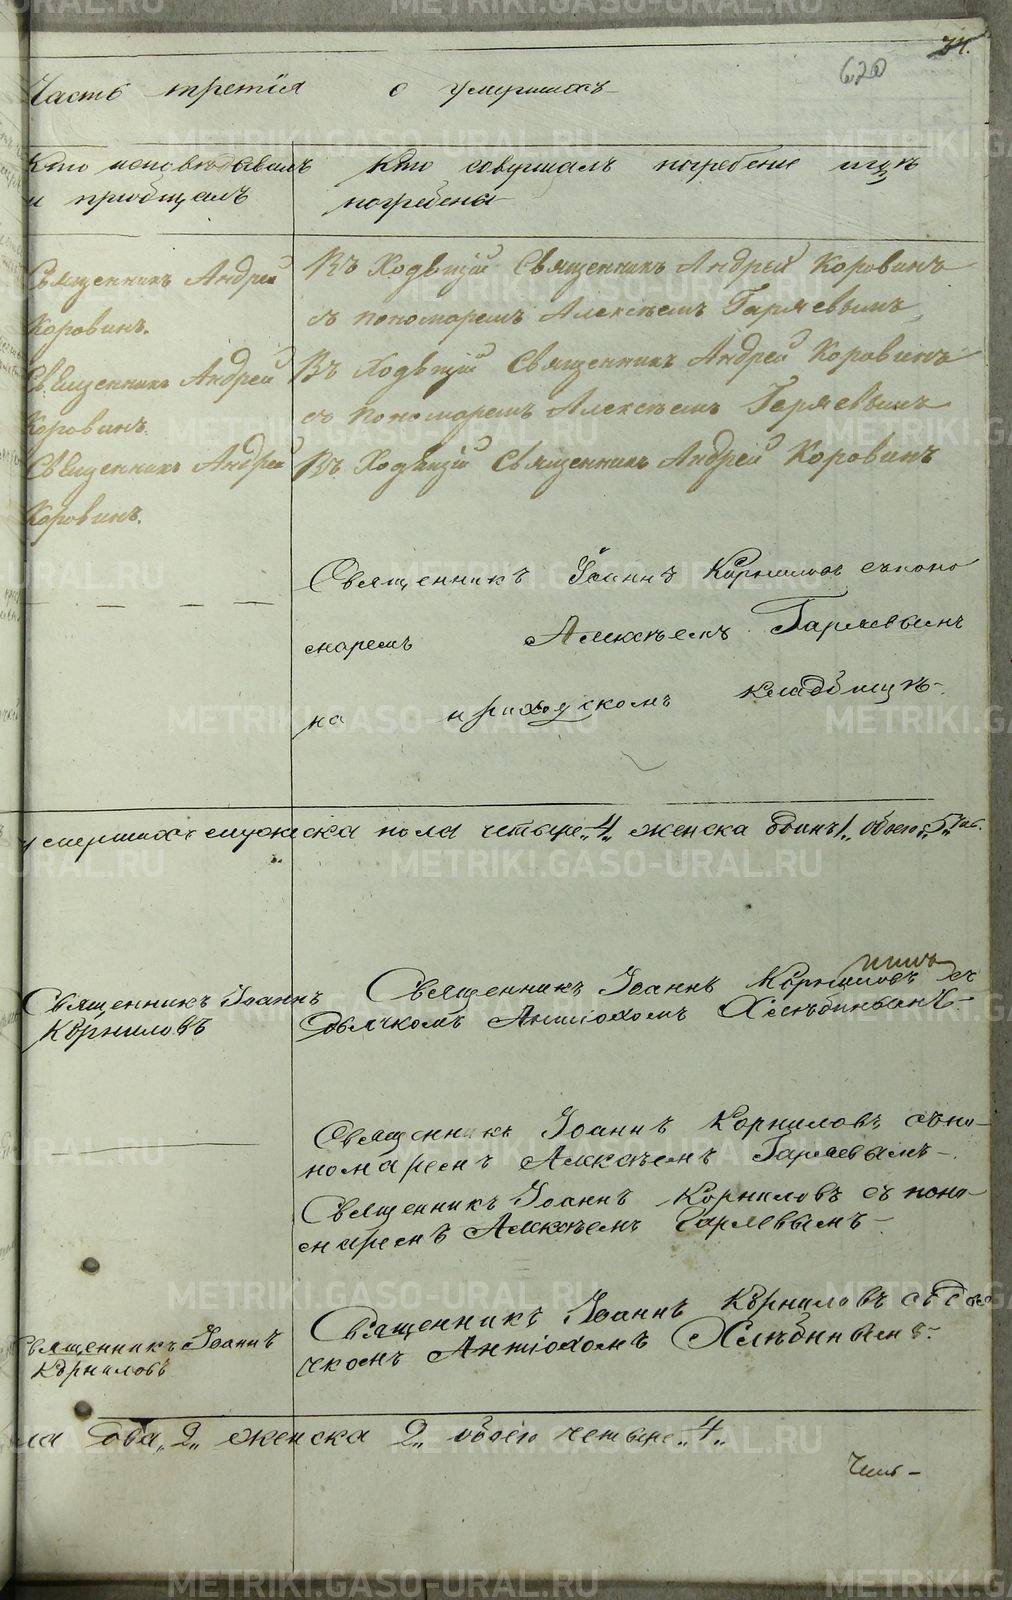 74.
620
Часть третія о умершихъ
Кто исповѣдавалъ
и пріобщалъ
Кто совершалъ погребеніе и гдѣ
погребены
Священникъ Андрей
Коровинъ.
Въ Ходѣщій Священникъ Андрей Коровинъ
съ пономаремъ Алексѣемъ Гаряевымъ
Священникъ Андрей
Коровинъ.
Въ Ходѣщій Священникъ Андрей Коровинъ
съ пономаремъ Алексѣемъ Гаряевымъ
Священникъ Андрей
Коровинъ.
Въ Ходѣщій Священникъ Андрей Коровинъ
Священникъ Іоаннъ Корниловъ съ поно
маремъ Алексѣемъ Гаряевымъ
на приходскомъ кладбищѣ
умершихъ мужеска пола четыре „4„ женска одинъ 1„ обоего „5„
Священникъ Іоаннъ
Корниловъ
Священникъ Іоаннъ Корниловъ съ
дьячкомъ Антіохомъ Хлѣбинымъ
Священникъ Іоаннъ Корниловъ съ по-
номаремъ Алексѣемъ Гаряевымъ
Священникъ Іоаннъ Корниловъ съ поно-
маремъ Алексѣемъ Гаряевымъ
Священникъ Іоаннъ
Корниловъ
Священникъ Іоаннъ Корниловъ съ дья
чкомъ Антіохомъ Хлѣбинымъ
ла два „2„ женска 2„ обоего четыре „4„
METRIKI.GASO-URAL.RU